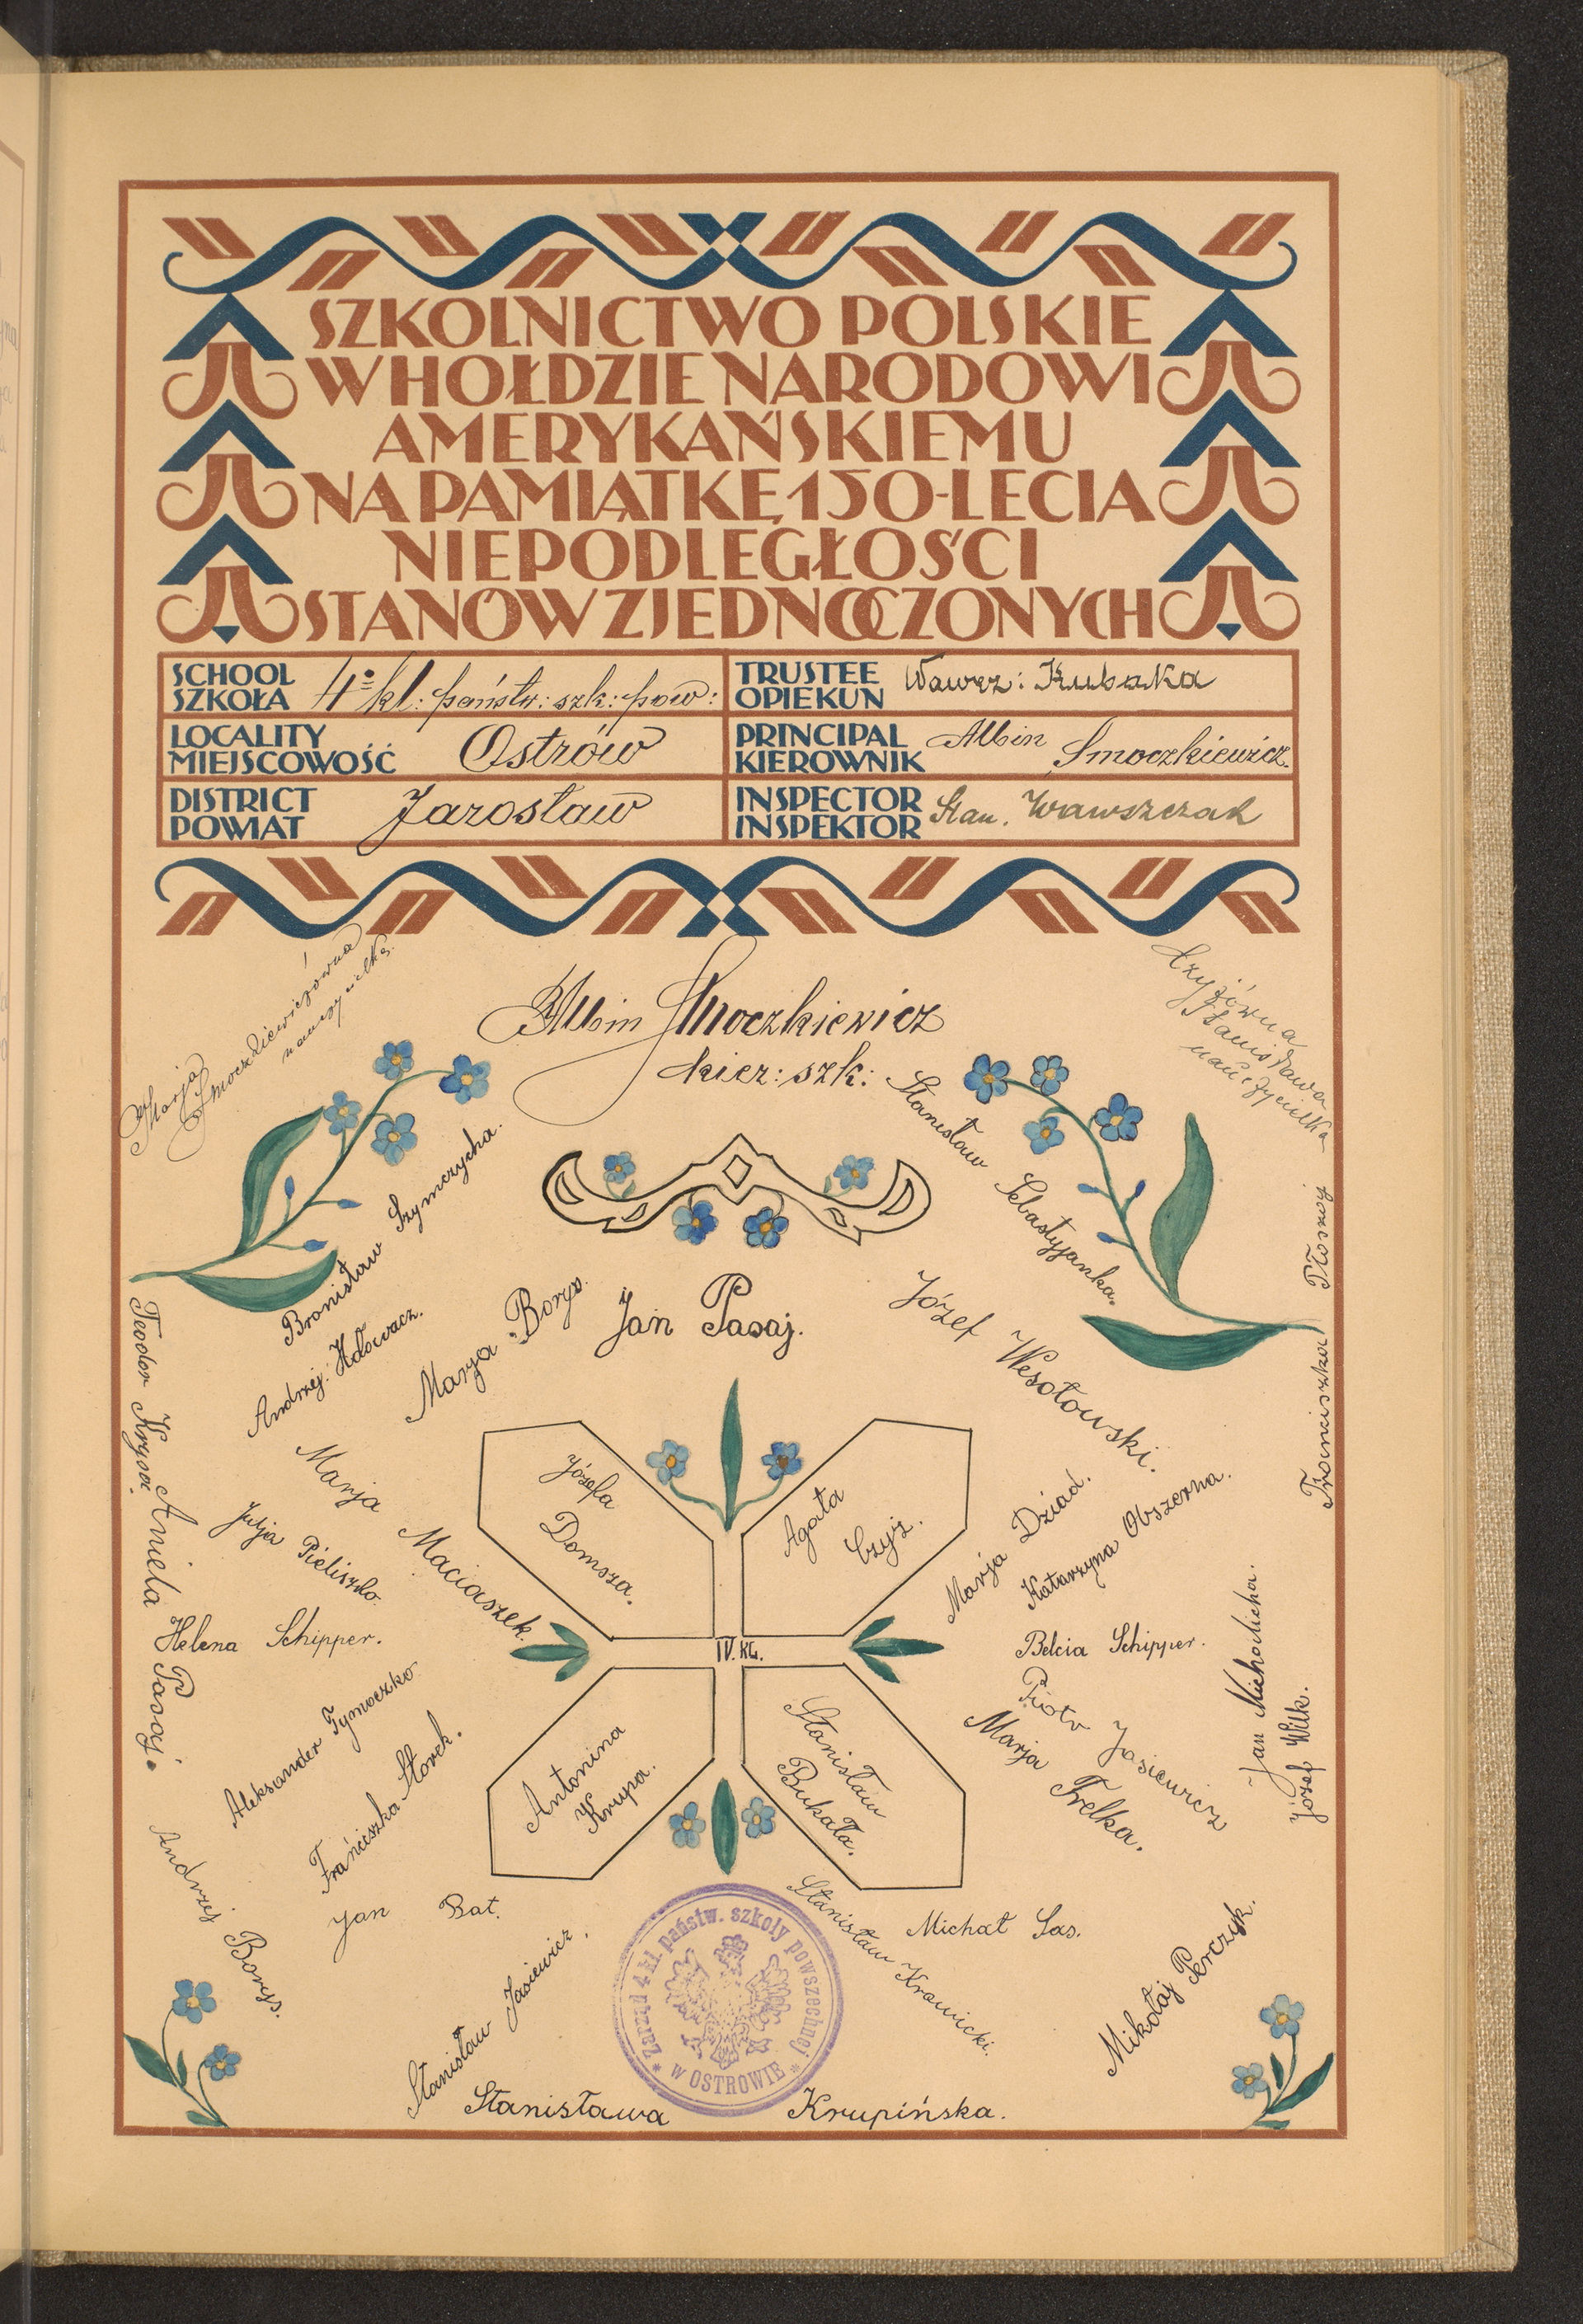 SZKOLNICTWO POLSKIE
W HOŁDZIE NARODOWI
AMERYKAŃSKIEMU
NA PAMIĄTKĘ 150-LECIA
NIEPODLEGŁOŚCI
STANÓW ZJEDNOCZONYCH
SCHOOL
SZKOŁA
4º kl: państw: szk: pow:
TRUSTEE
OPIEKUN
Wawrz: Kubaka
LOCALITY
MIEJSCOWOŚĆ
Ostrów
PRINCIPAL
KIEROWNIK
Albin Smoczkiewicz.
DISTRICT
POWIAT
Jarosław
INSPECTOR
INSPEKTOR
Stan. Wawszczak
Marja
Smoczkiewiczówna
nauczycielka.
Albin Smoczkiewicz
kier: szk:
Czyżówna
Stanisława
nauczycielka
Bronisław Szymczycha.
Stanisław Sebastyjanka.
Andrzej Hdowacz.
Marja Borys.
Jan Pasaj.
Józef Wesołowski.
Franciszka Płoskoj
Teodor Krysa.
Aniela Pasaj.
Marja Maciaszek.
Julja Pieliszko.
Helena Schipper.
Józefa
Domsza.
Agata
Czyż.
Marja Dziad.
Katarzyna Obszerna.
IV. KL.
Belcia Schipper.
Piotr Jasiewicz
Marja Trelka.
Jan Michalicha.
Józef Wilk.
Aleksander Tymoczko
Franciszka Storek.
Antonina
Krupa.
Stanisław
Bukała.
Andrzej Borys.
Jan Bat.
Stanisław Jasiewicz.
Stanisław Krawicki.
Michał Sas.
Mikołaj Perczyk.
Zarząd 4 kl. państw. szkoły powszechnej
* w OSTROWIE *
Stanisława Krupińska.